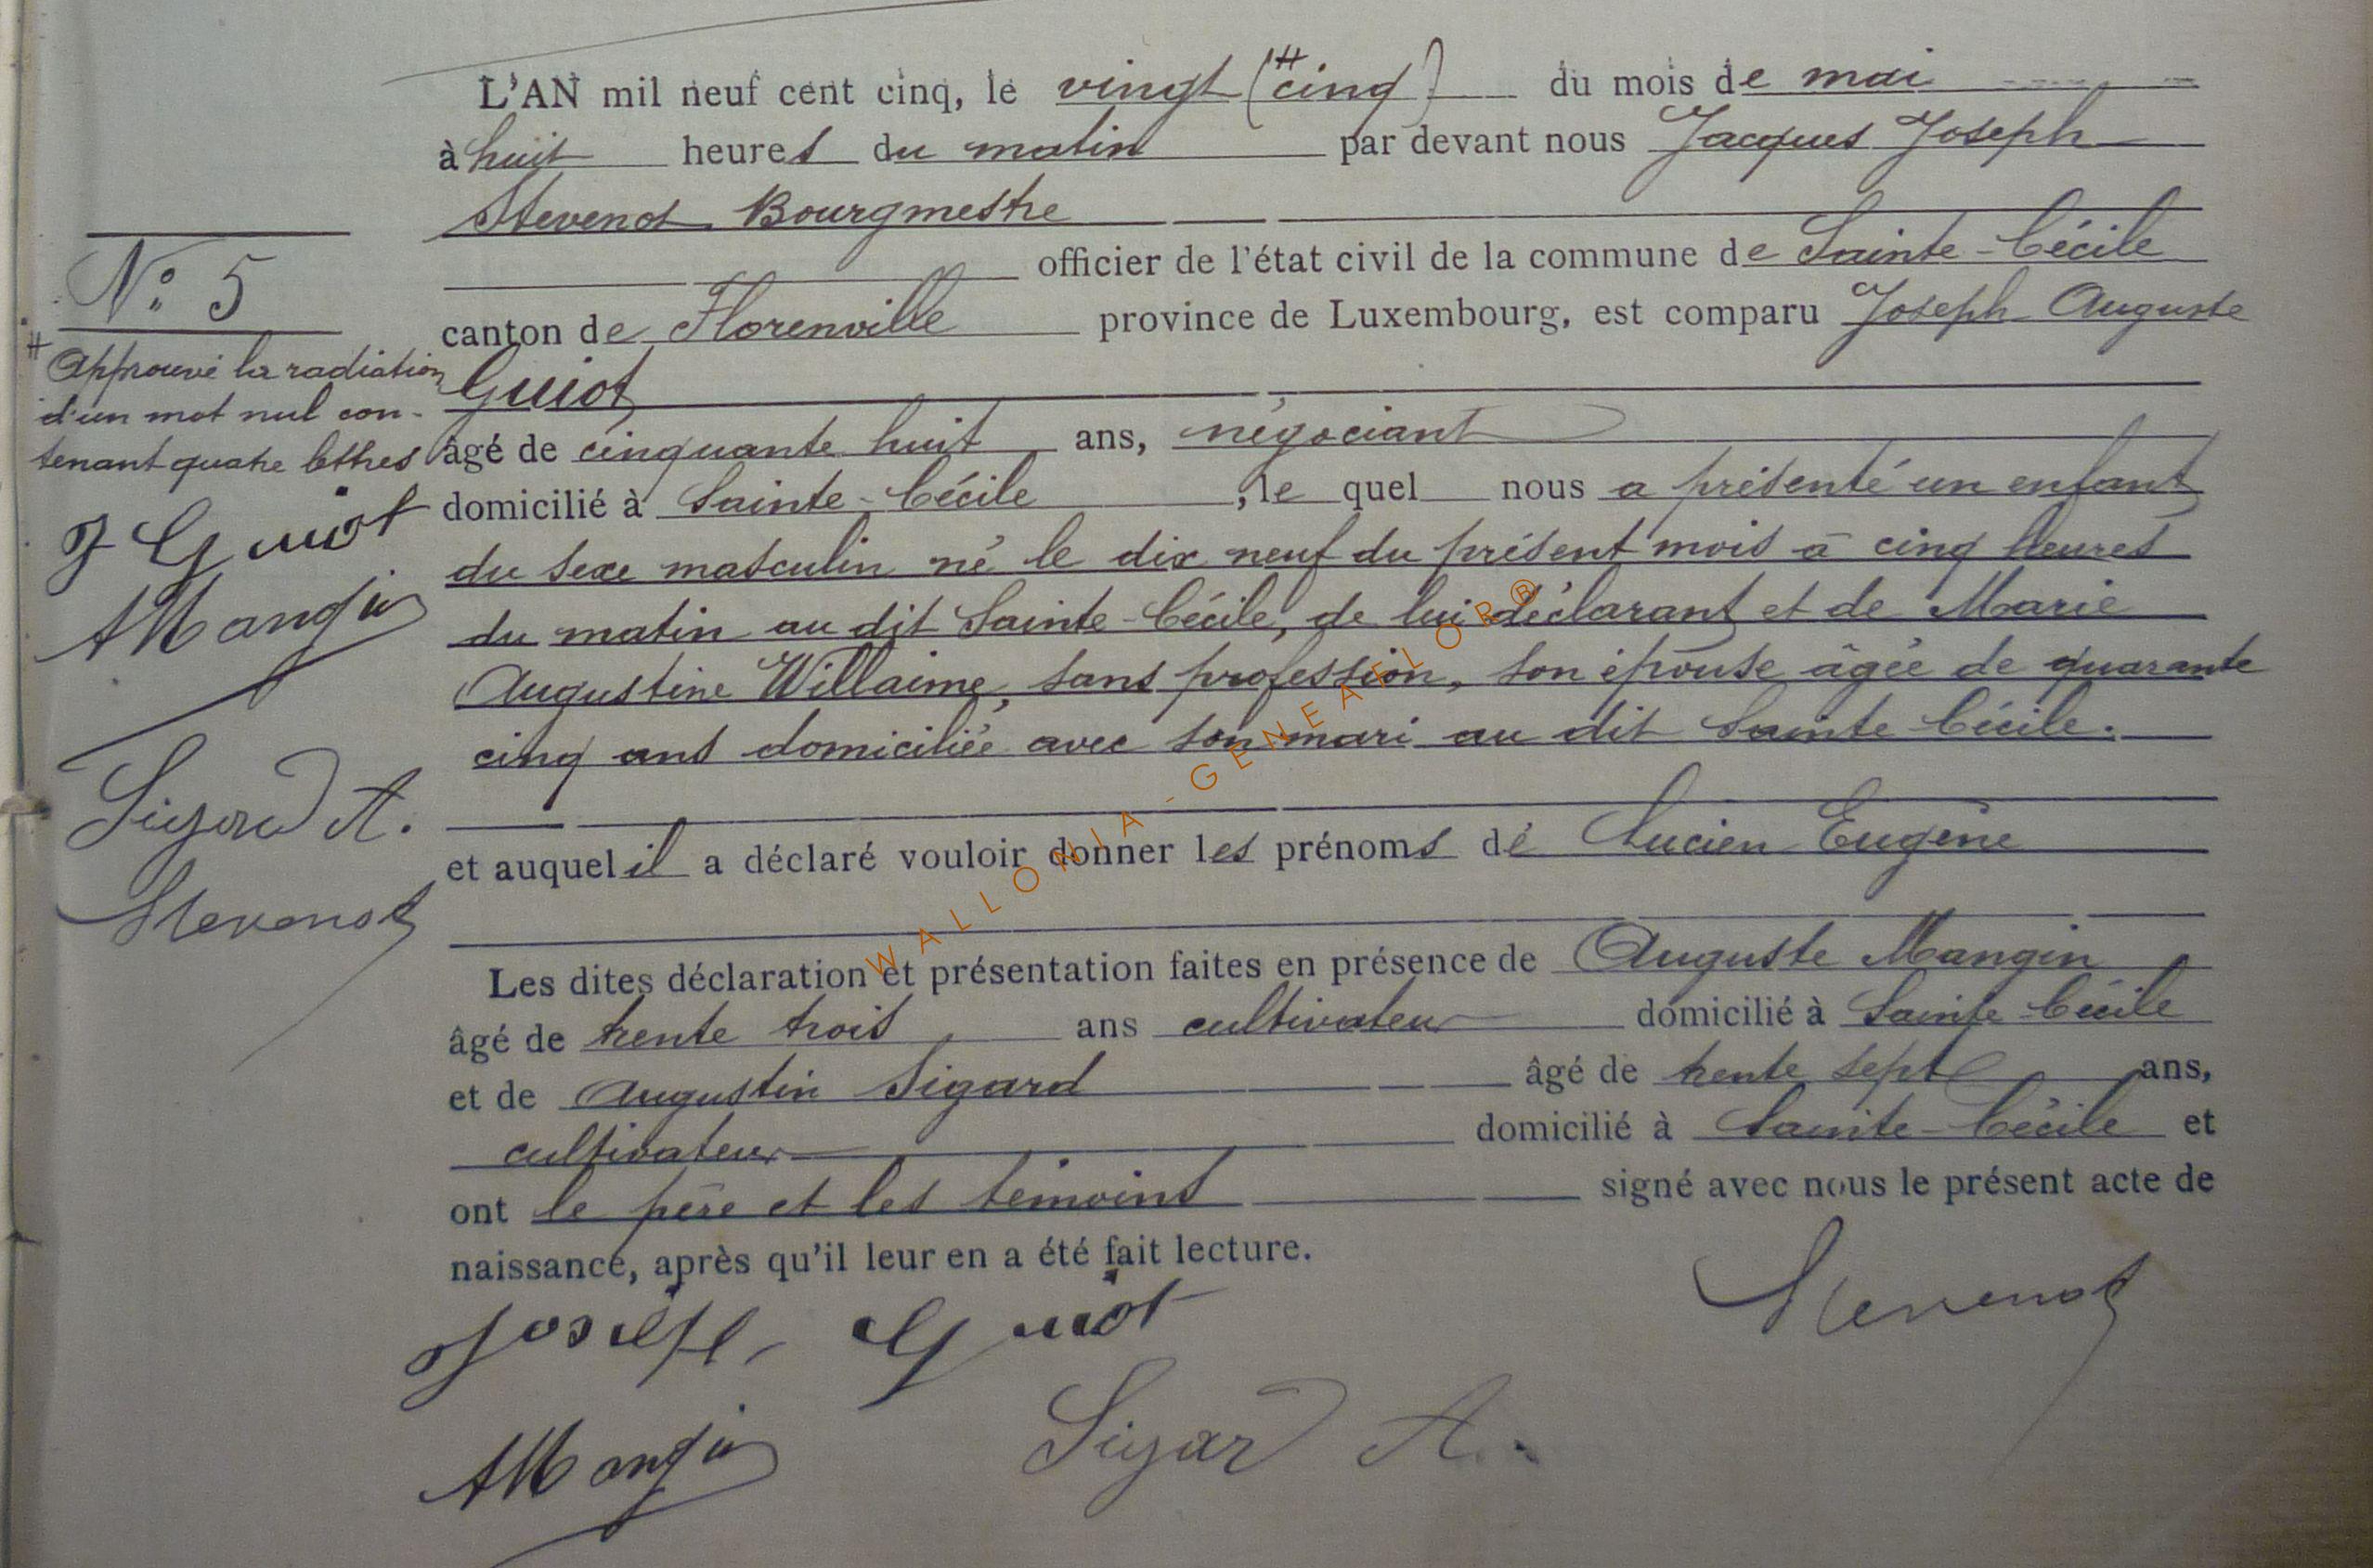 L'AN mil neuf cent cinq, le vingt (# cinq) du mois de mai
à huit heures du matin par devant nous Jacques Joseph
Stevenot Bourgmestre
officier de l'état civil de la commune de Sainte-Cécile
canton de Florenville province de Luxembourg, est comparu Joseph Auguste
Guiot
âgé de cinquante huit ans, négociant
domicilié à Sainte-Cécile, le quel nous a présenté un enfant
du sexe masculin né le dix neuf du présent mois à cinq heures
du matin au dit Sainte-Cécile, de lui déclarant et de Marie
Augustine Willaime, sans profession, son épouse âgée de quarante
cinq ans domiciliée avec son mari au dit Sainte Cécile.
et auquel il a déclaré vouloir donner les prénoms de Lucien Eugène
Les dites déclaration et présentation faites en présence de Auguste Mangin
âgé de trente trois ans cultivateur domicilié à Sainte Cécile
et de Augustin Sigard âgé de trente sept ans,
cultivateur domicilié à Sainte-Cécile et
ont le père et les témoins signé avec nous le présent acte de
naissance, après qu'il leur en a été fait lecture.
Joseph Guiot
Stevenot
AMangin
Sigard A.
N° 5
# Approuvé la radiation
d'un mot nul con-
tenant quatre lettres
J Guiot
AMangin
Sigard A.
Stevenot
WALLONIA-GENEAFLOR®